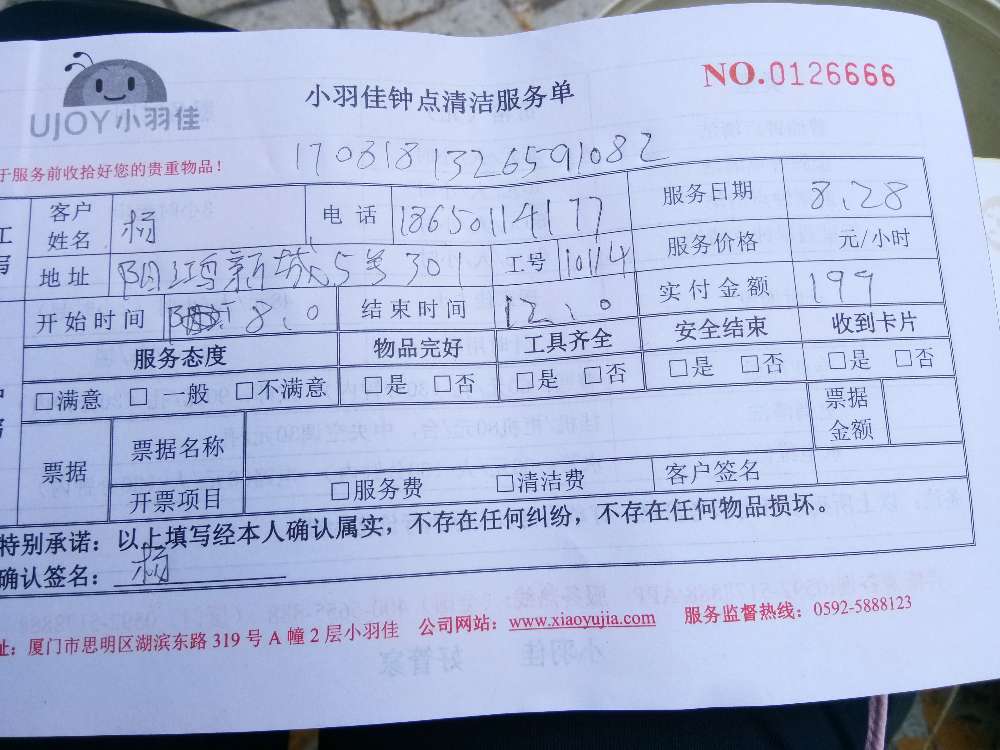 UJOY小羽佳
小羽佳钟点清洁服务单
NO.0126666
于服务前收拾好您的贵重物品!
1708181326591082
客户姓名 杨 电话 18650114177 服务日期 8.28
地址 阳鸿新城5号301 工号 10114 服务价格 元/小时
开始时间 8:0 结束时间 12:0 实付金额 199
服务态度 物品完好 工具齐全 安全结束 收到卡片
□满意 □一般 □不满意 □是 □否 □是 □否 □是 □否 □是 □否
票据 票据名称 票据金额
开票项目 □服务费 □清洁费 客户签名
特别承诺：以上填写经本人确认属实，不存在任何纠纷，不存在任何物品损坏。
确认签名： 杨
址：厦门市思明区湖滨东路319号A幢2层小羽佳 公司网站：www.xiaoyujia.com 服务监督热线：0592-5888123